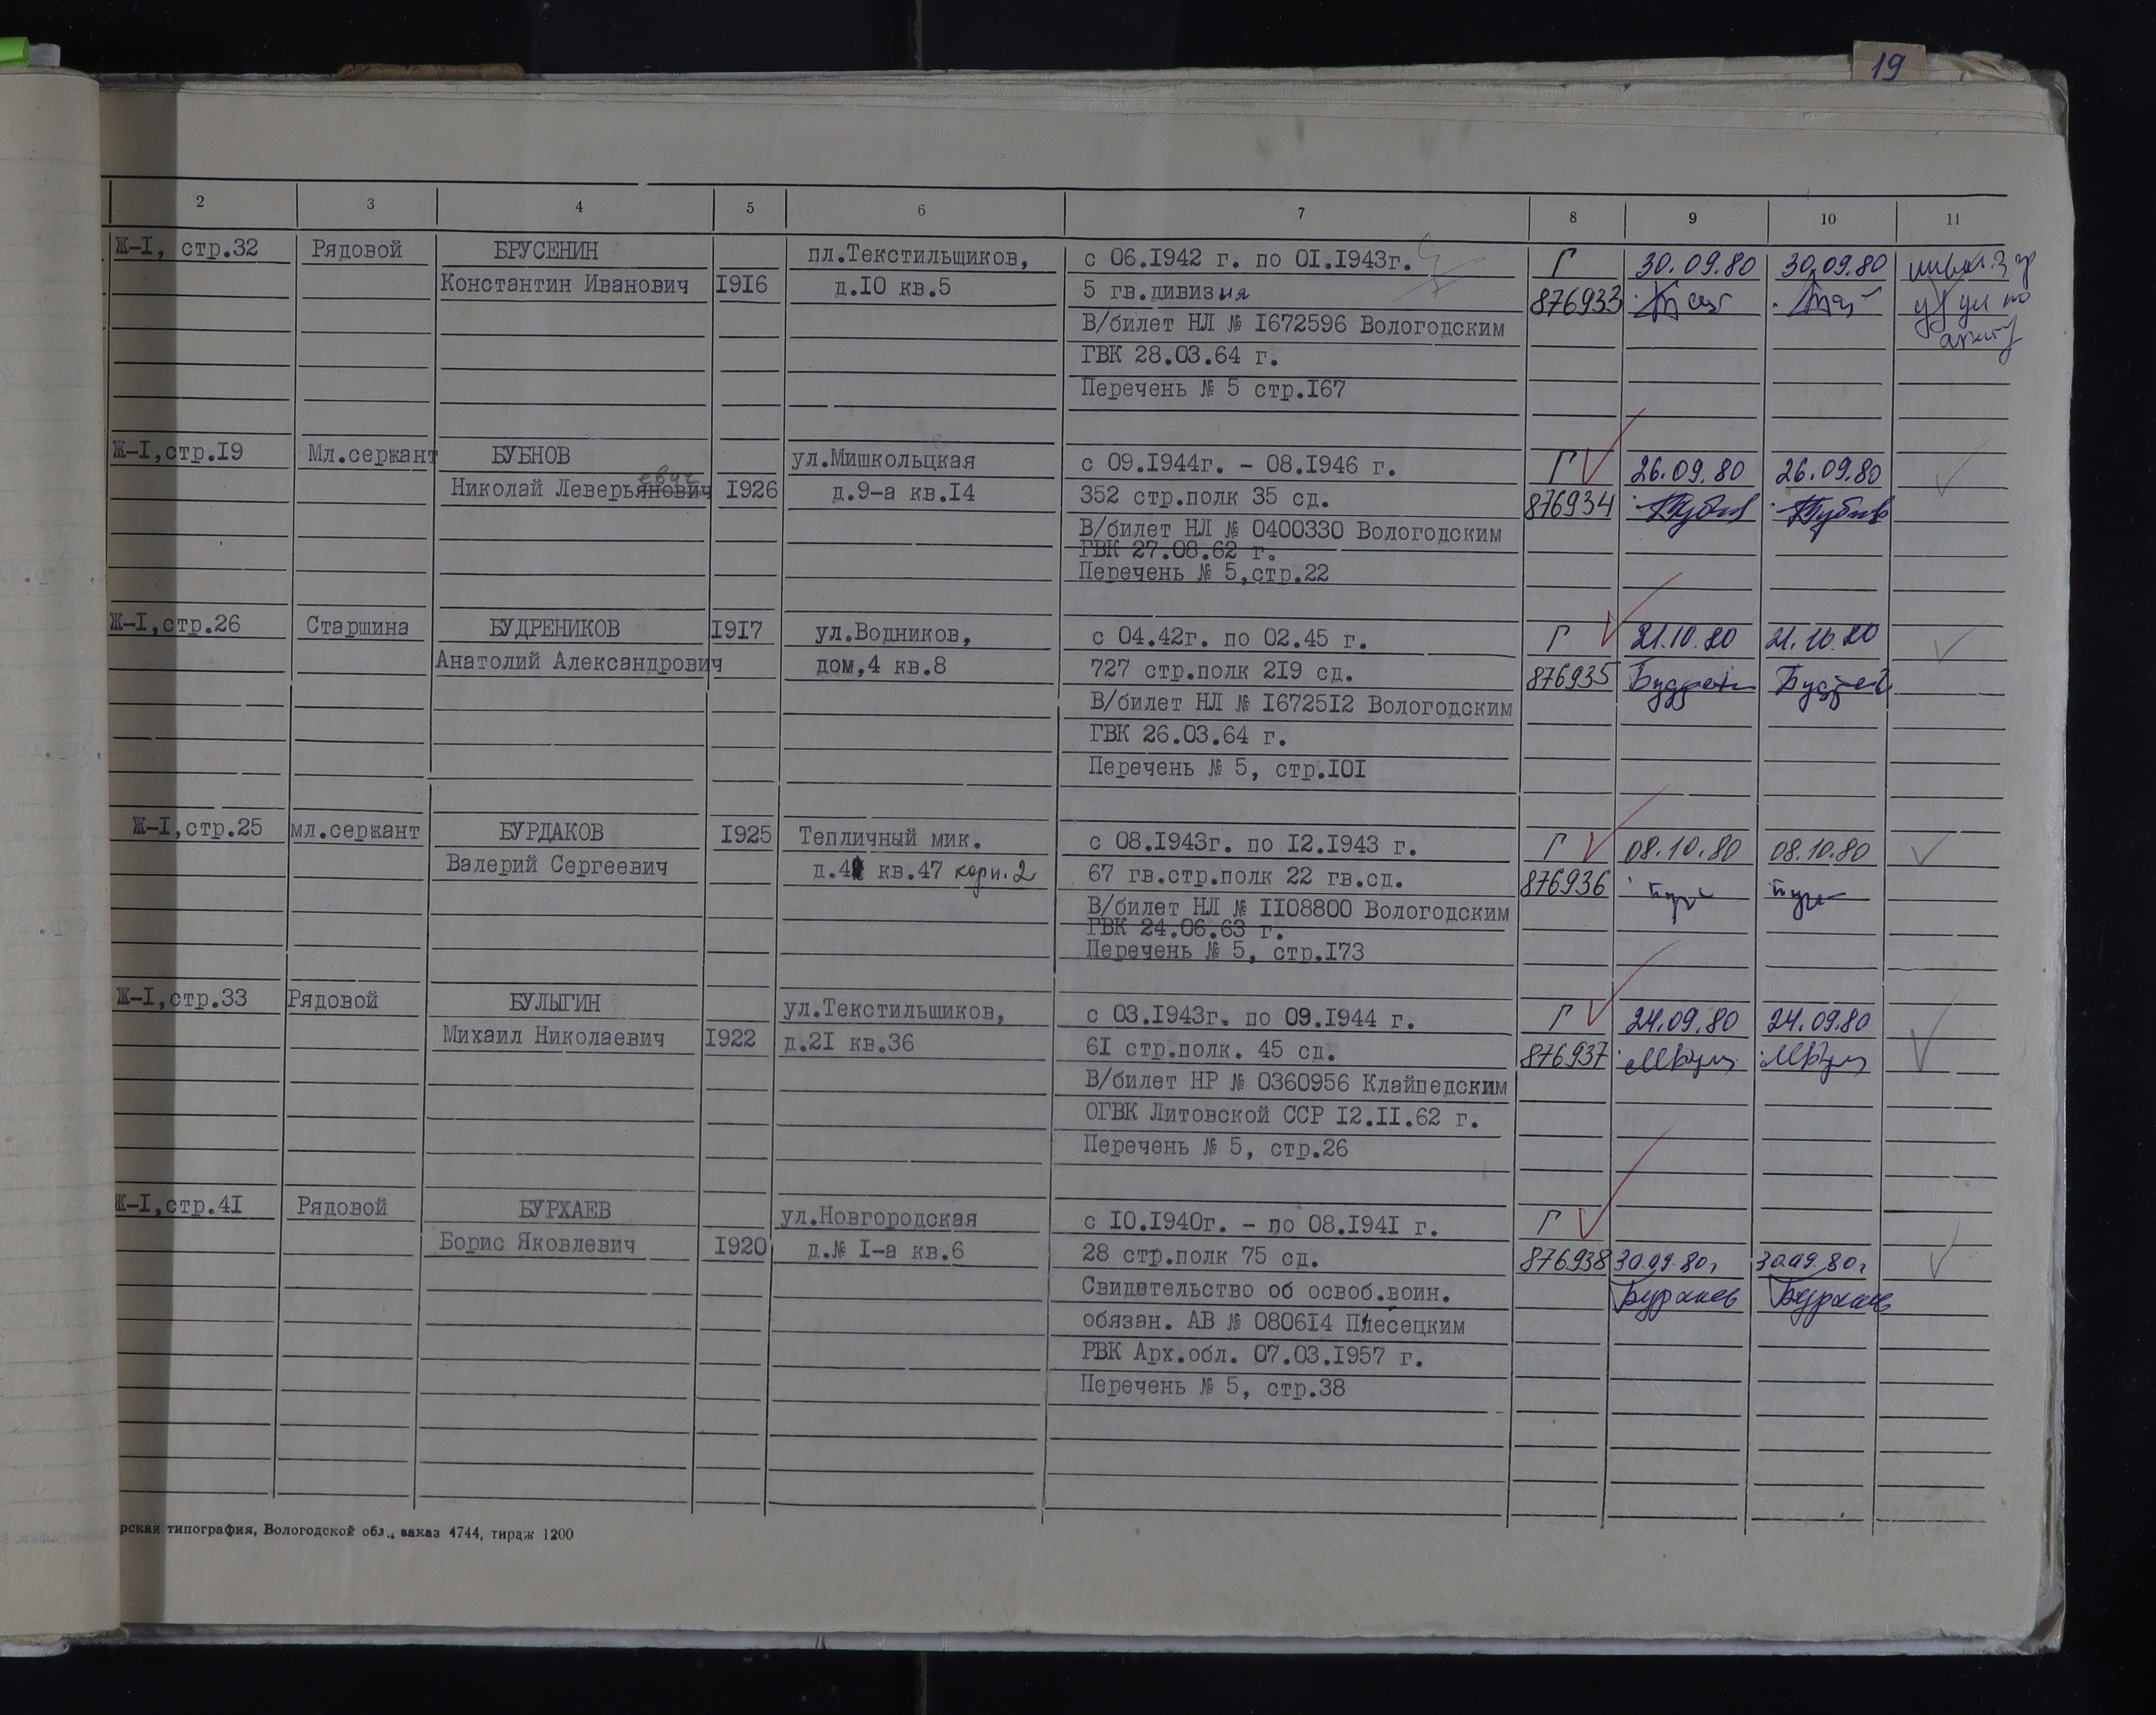 19
2 3 4 5 6 7 8 9 10 11
Ж-I, стр.32 Рядовой БРУСЕНИН пл.Текстильщиков, с 06.I942 г. по 0I.I943г. Г 30.09.80 30.09.80
Константин Иванович I9I6 д.I0 кв.5 5 гв.дивизия 876933
В/билет НЛ № I672596 Вологодским
ГВК 28.03.64 г.
Перечень № 5 стр.I67
Ж-I,стр.I9 Мл.сержант БУБНОВ ул.Мишкольцкая с 09.I944г. - 08.I946 г. Г 26.09.80 26.09.80
евич
Николай Леверьянович I926 д.9-а кв.I4 352 стр.полк 35 сд. 876934
В/билет НЛ № 0400330 Вологодским
ГВК 27.08.62 г.
Перечень № 5,стр.22
Ж-I,стр.26 Старшина БУДРЕНИКОВ I9I7 ул.Водников, с 04.42г. по 02.45 г. Г 21.10.80 21.10.80
Анатолий Александрович дом,4 кв.8 727 стр.полк 2I9 сд. 876935
В/билет НЛ № I6725I2 Вологодским
ГВК 26.03.64 г.
Перечень № 5, стр.I0I
Ж-I,стр.25 мл.сержант БУРДАКОВ I925 Тепличный мик. с 08.I943г. по I2.I943 г. Г 08.10.80 08.10.80
Валерий Сергеевич д.4 кв.47 корп.2 67 гв.стр.полк 22 гв.сд. 876936
В/билет НЛ № II08800 Вологодским
РВК 24.06.63 г.
Перечень № 5, стр.I73
Ж-I,стр.33 Рядовой БУЛЫГИН ул.Текстильщиков, с 03.I943г. по 09.I944 г. Г 24.09.80 24.09.80
Михаил Николаевич I922 д.2I кв.36 6I стр.полк. 45 сд. 876937
В/билет НР № 0360956 Клайпедским
ОГВК Литовской ССР I2.II.62 г.
Перечень № 5, стр.26
Ж-I,стр.4I Рядовой БУРХАЕВ ул.Новгородская с I0.I940г. - по 08.I94I г. Г
Борис Яковлевич I920 д.№ I-а кв.6 28 стр.полк 75 сд. 876938 30.09.80г 30.09.80г
Свидетельство об освоб.воин. Бурхаев Бурхаев
обязан. АВ № 0806I4 Плесецким
РВК Арх.обл. 07.03.I957 г.
Перечень № 5, стр.38
рская типография, Вологодской обл., заказ 4744, тираж 1200